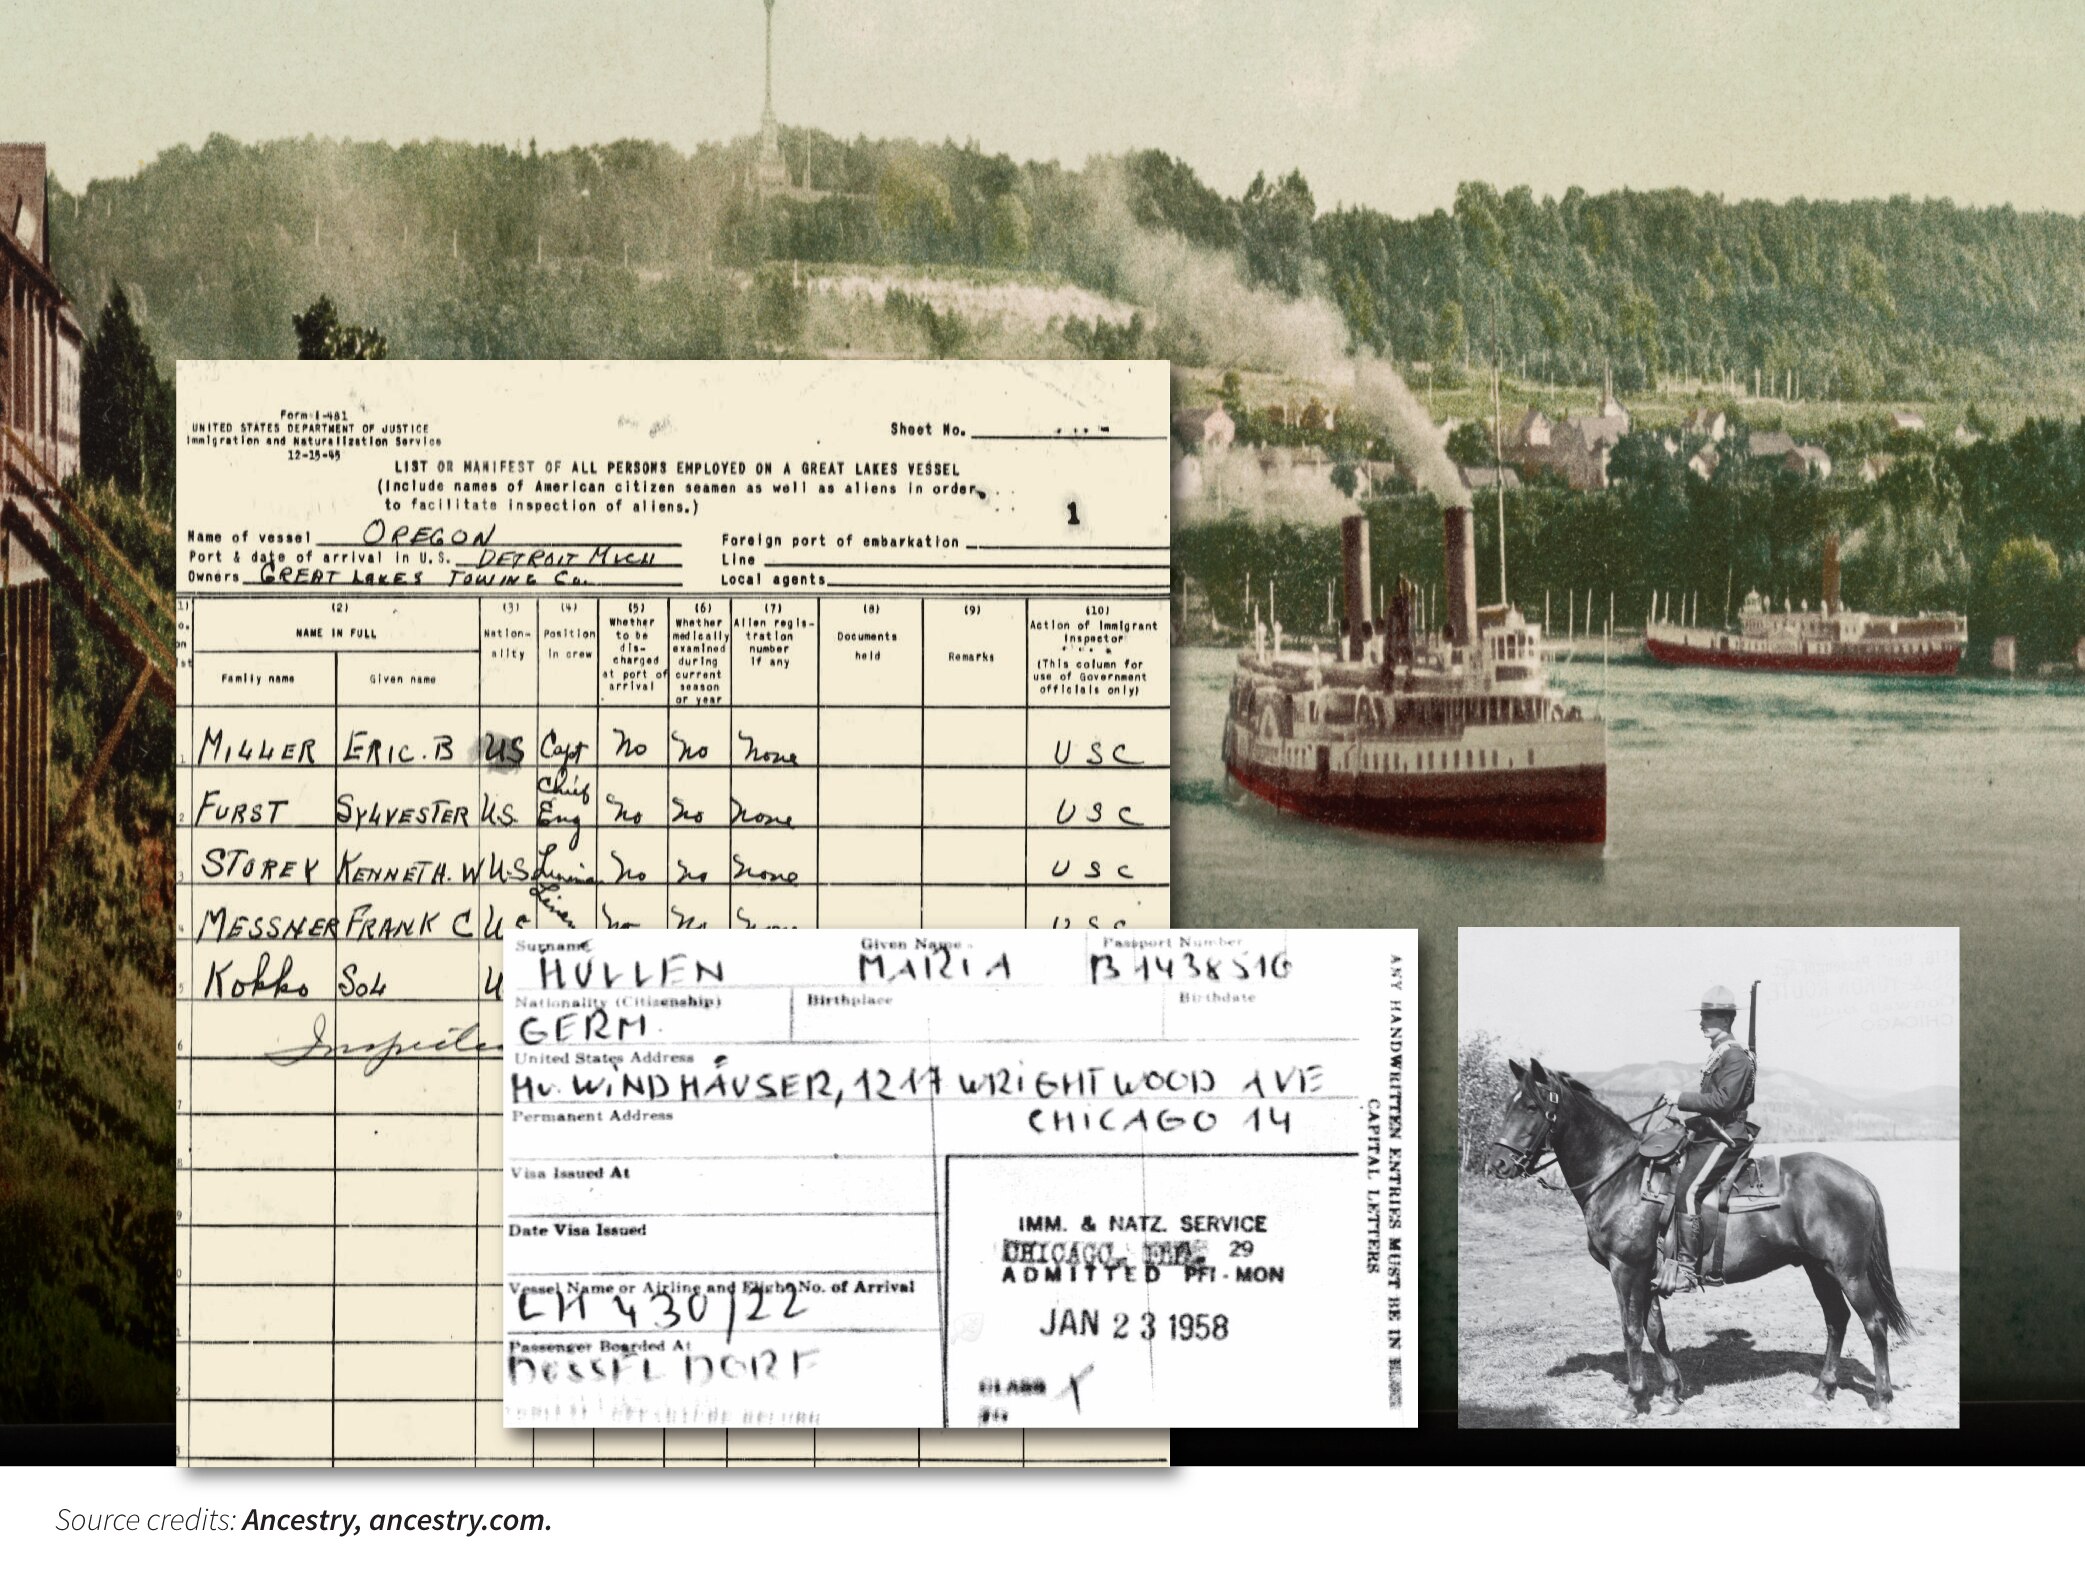 Form I-481
UNITED STATES DEPARTMENT OF JUSTICE
Immigration and Naturalization Service
12-15-45
Sheet No.
LIST OR MANIFEST OF ALL PERSONS EMPLOYED ON A GREAT LAKES VESSEL
(Include names of American citizen seamen as well as aliens in order
to facilitate inspection of aliens.)
1
Name of vessel OREGON
Foreign port of embarkation
Port & date of arrival in U.S. DETROIT MICH
Line
Owners GREAT LAKES TOWING Co.
Local agents
(2) (3) (4) (5) (6) (7) (8) (9) (10)
NAME IN FULL
Family name
Given name
Nation-
ality
Position
in crew
Whether
to be
dis-
charged
at port of
arrival
Whether
medically
examined
during
current
season
or year
Alien regis-
tration
number
if any
Documents
held
Remarks
Action of Immigrant
Inspector
(This column for
use of Government
officials only)
1 MILLER ERIC. B US Capt No No None USC
2 FURST SYLVESTER U.S. Chief Eng No No None USC
3 STOREY KENNETH. W U.S No No None USC
4 MESSNER FRANK C
5 Kokko SOL
6
7
8
9
Surname
HULLEN
Given Name
MARIA
Passport Number
B1438516
Nationality (Citizenship)
GERM.
Birthplace
Birthdate
United States Address
WINDHÄUSER, 1217 WRIGHTWOOD AVE
Permanent Address
CHICAGO 14
Visa Issued At
Date Visa Issued
Vessel Name or Airline and Flight No. of Arrival
LH 430/22
Passenger Boarded At
IMM. & NATZ. SERVICE
CHICAGO, 29
ADMITTED PFI-MON
JAN 23 1958
CLASS
ANY HANDWRITTEN ENTRIES MUST BE IN
CAPITAL LETTERS
Source credits: Ancestry, ancestry.com.